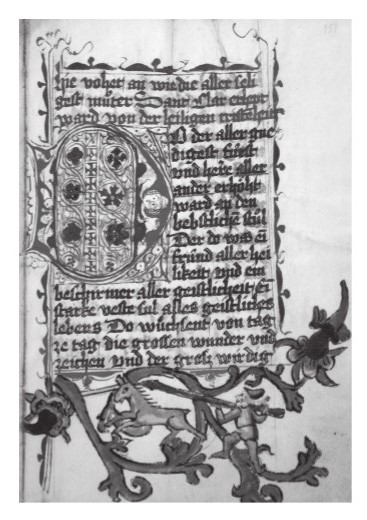 hie vohet an wie die aller seli
gest můter Sant Clar erhept
ward von der heiligen cristēheit
O der aller gne
digest fúrst
vnd herre aller
ander erhöht
ward an den
bebstlichen stůl
Der do was ei
frúnd aller hei
likeit vnd ein
beschirmer aller geistlicheit Ei
starke veste sul alles geistliches
lebens Do wůchsent von tag
ze tag die grossen wunder vnd
zeichen vnd der grosz wirdig